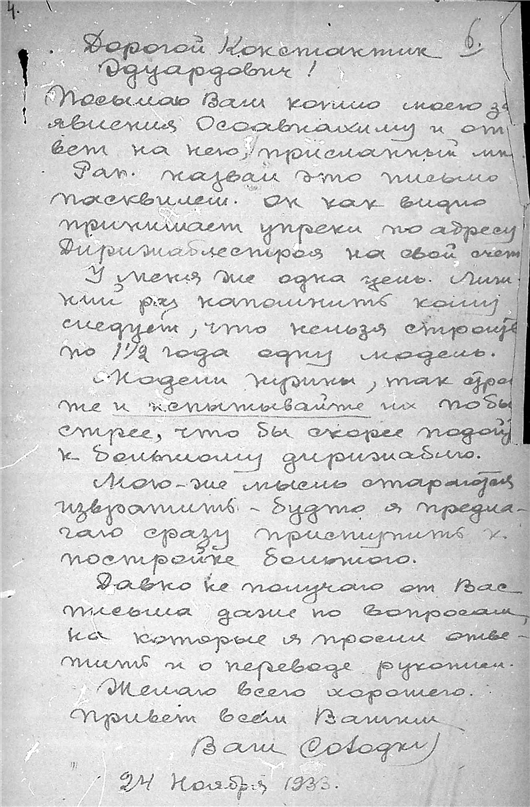 4.
6.
Дорогой Константин
Эдуардович!
Посылаю Вам копию моего за
явления Осоавиахиму и от
вет на него, присланный мне
Рап. назвал это письмо
пасквилем. Он как видно
принимает упреки по адресу
Дирижаблестроя на свой счет
У меня же одна цель. Лиш
ний раз напомнить кому
следует, что нельзя строить
по 1 1/2 года одну модель.
Модели нужны, так
же и испытывайте их побы
стрее, что бы скорее подой
к большому дирижаблю.
Мою-же мысль стараются
извратить - будто я предла-
гаю сразу приступить к
постройке большого.
Давно не получаю от Вас
письма даже по вопросам,
на которые я просил отве-
тить и о переводе рукописи.
Желаю всего хорошего.
Привет всем Вашим
Ваш
24 Ноября 1933.